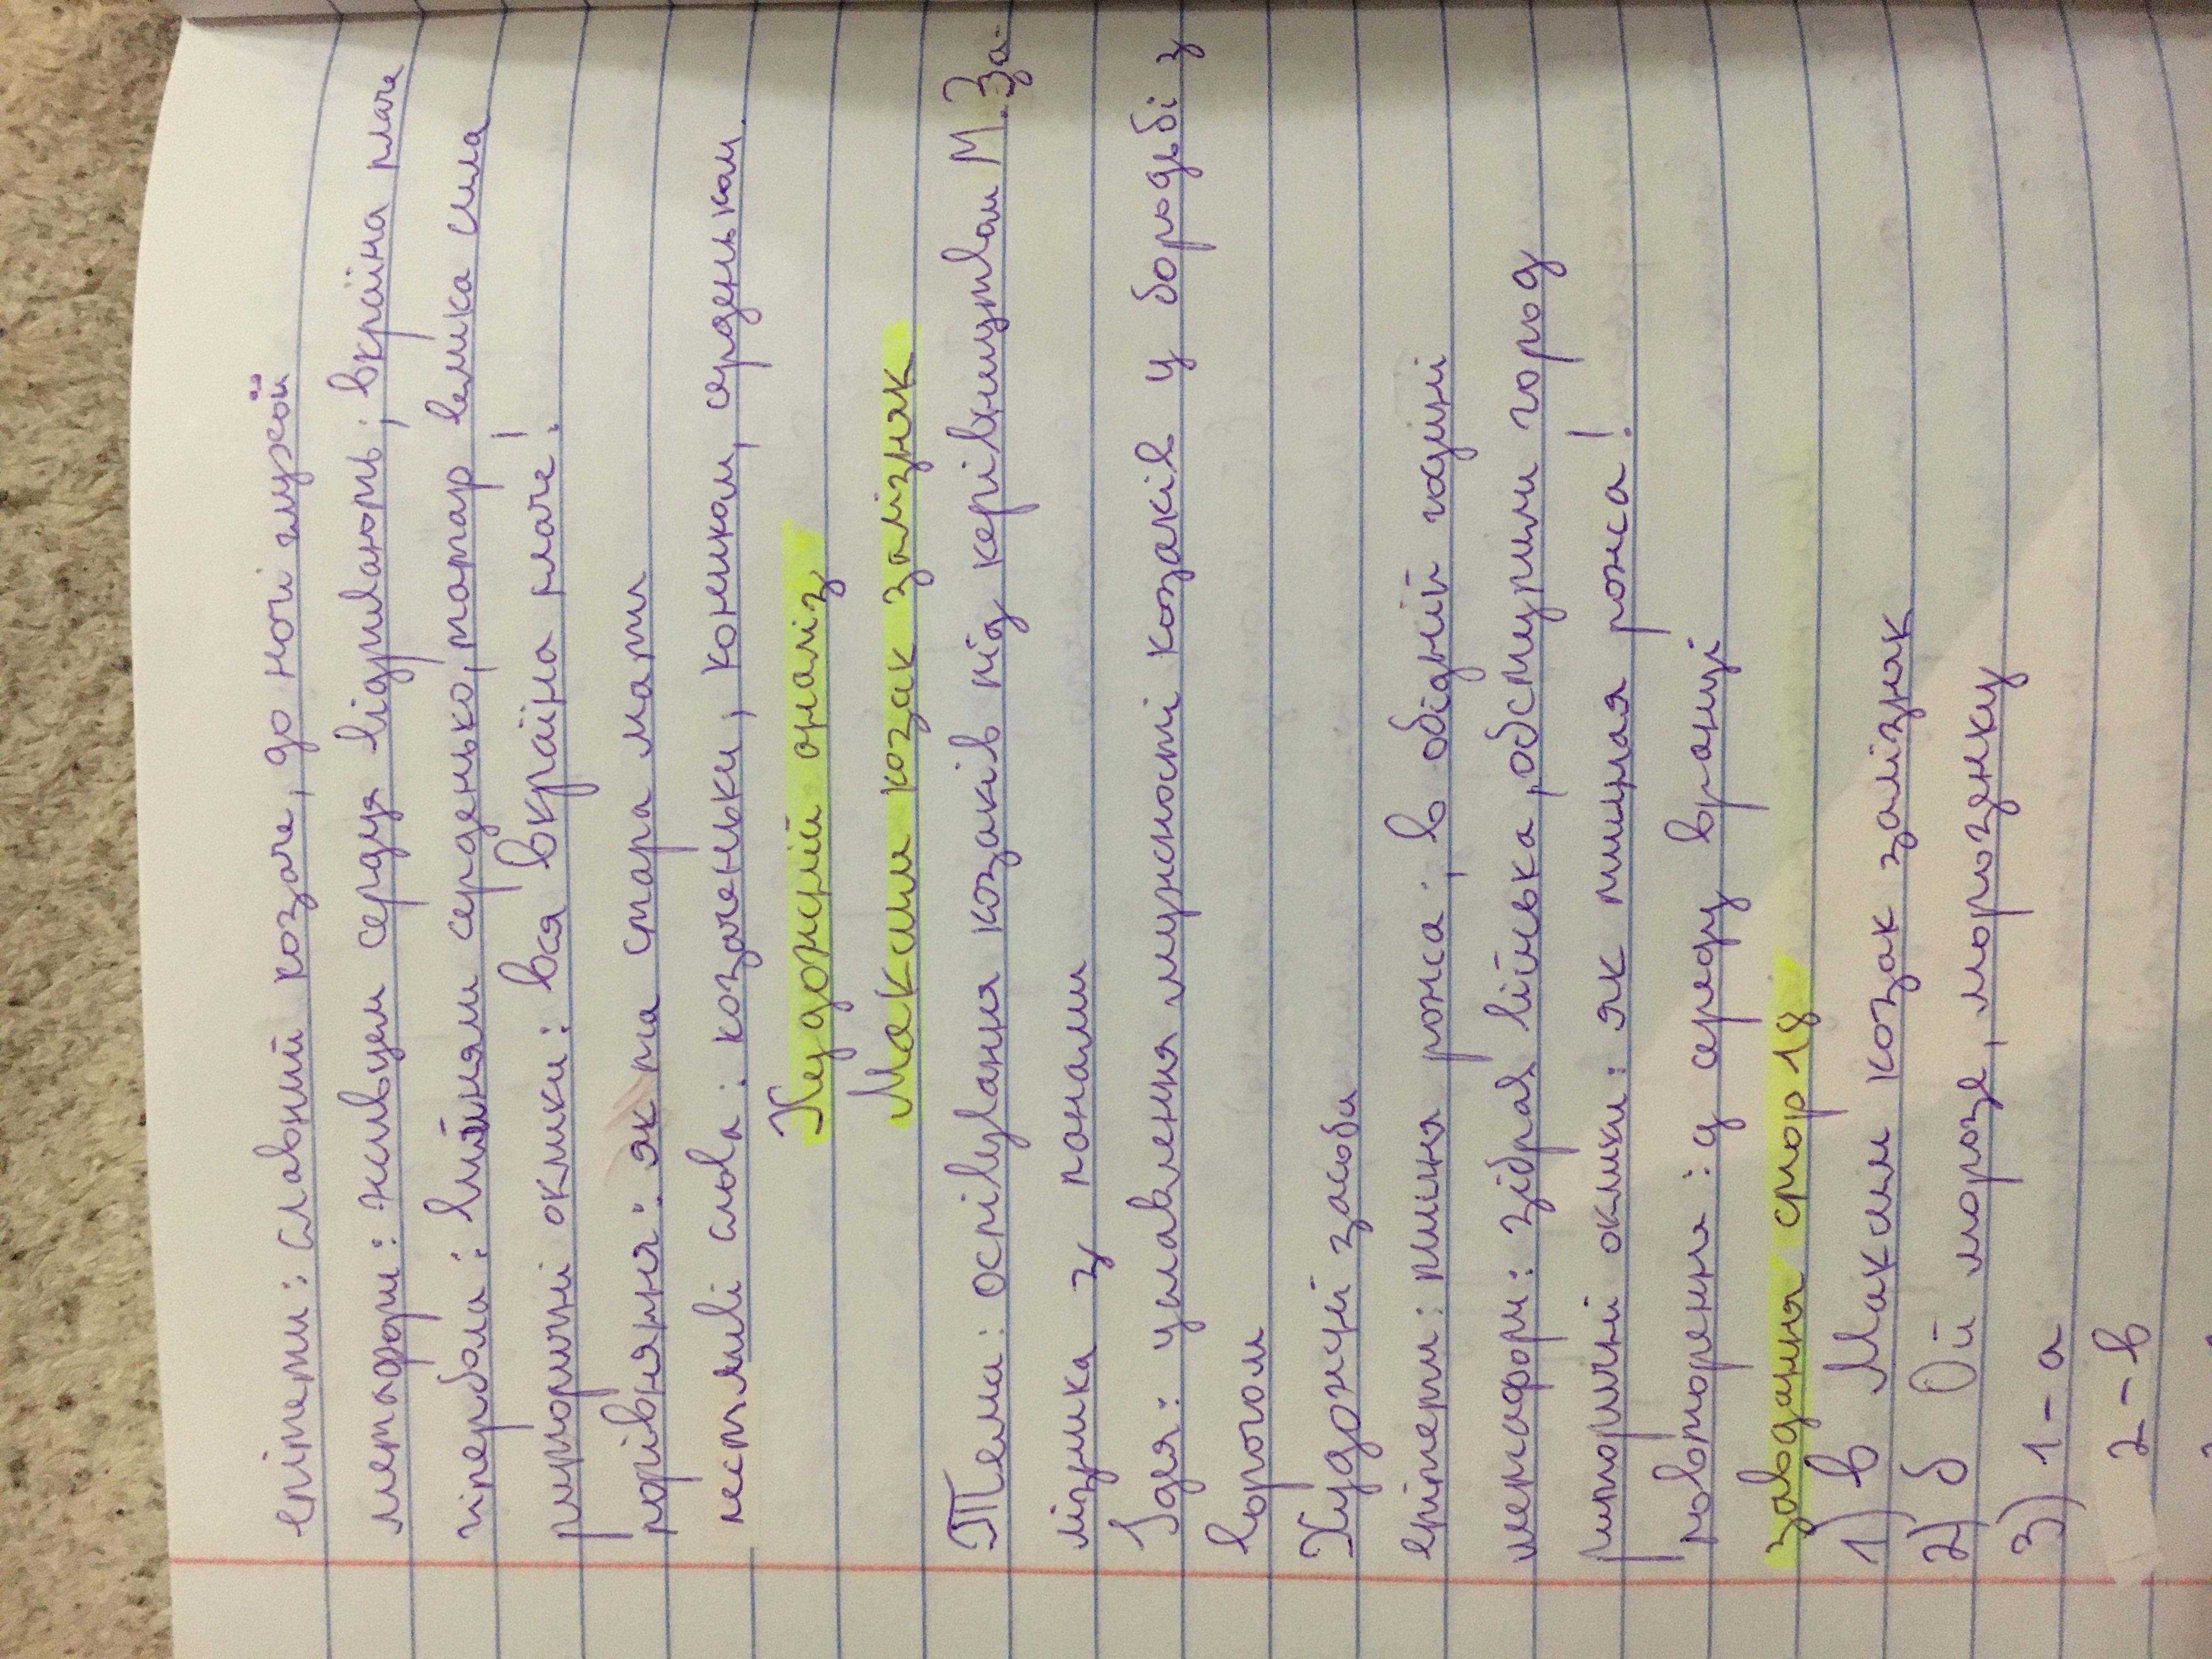 епітети: славний козаче, до ної чужої
метафори: живцем серця відривають; вкраїна плаче
гіпербола: вийняли серденько, татар велика сила
риторичні оклики: вся вкраїна плаче!
порівняння: як та стара мати
пестливі слова: козаченьки, коником, серденьком.
Художній аналіз
Максим козак залізняк
Тема: оспівування козаків під керівництвом М. За-
лізника з понами
Ідея: уславлення мужності козаків у бородьбі з
ворогом
Художні засоби
епітети: пишна рожа; в обідній годині
метафори: зібрав війська, обступили город
риторичні оклики: як пишная рожа!
повторення: у середу вранці
завдання стор 18
1) в Максим козак залізняк
2) б Ой морозе, морозенку
3) 1 - а
2 - в